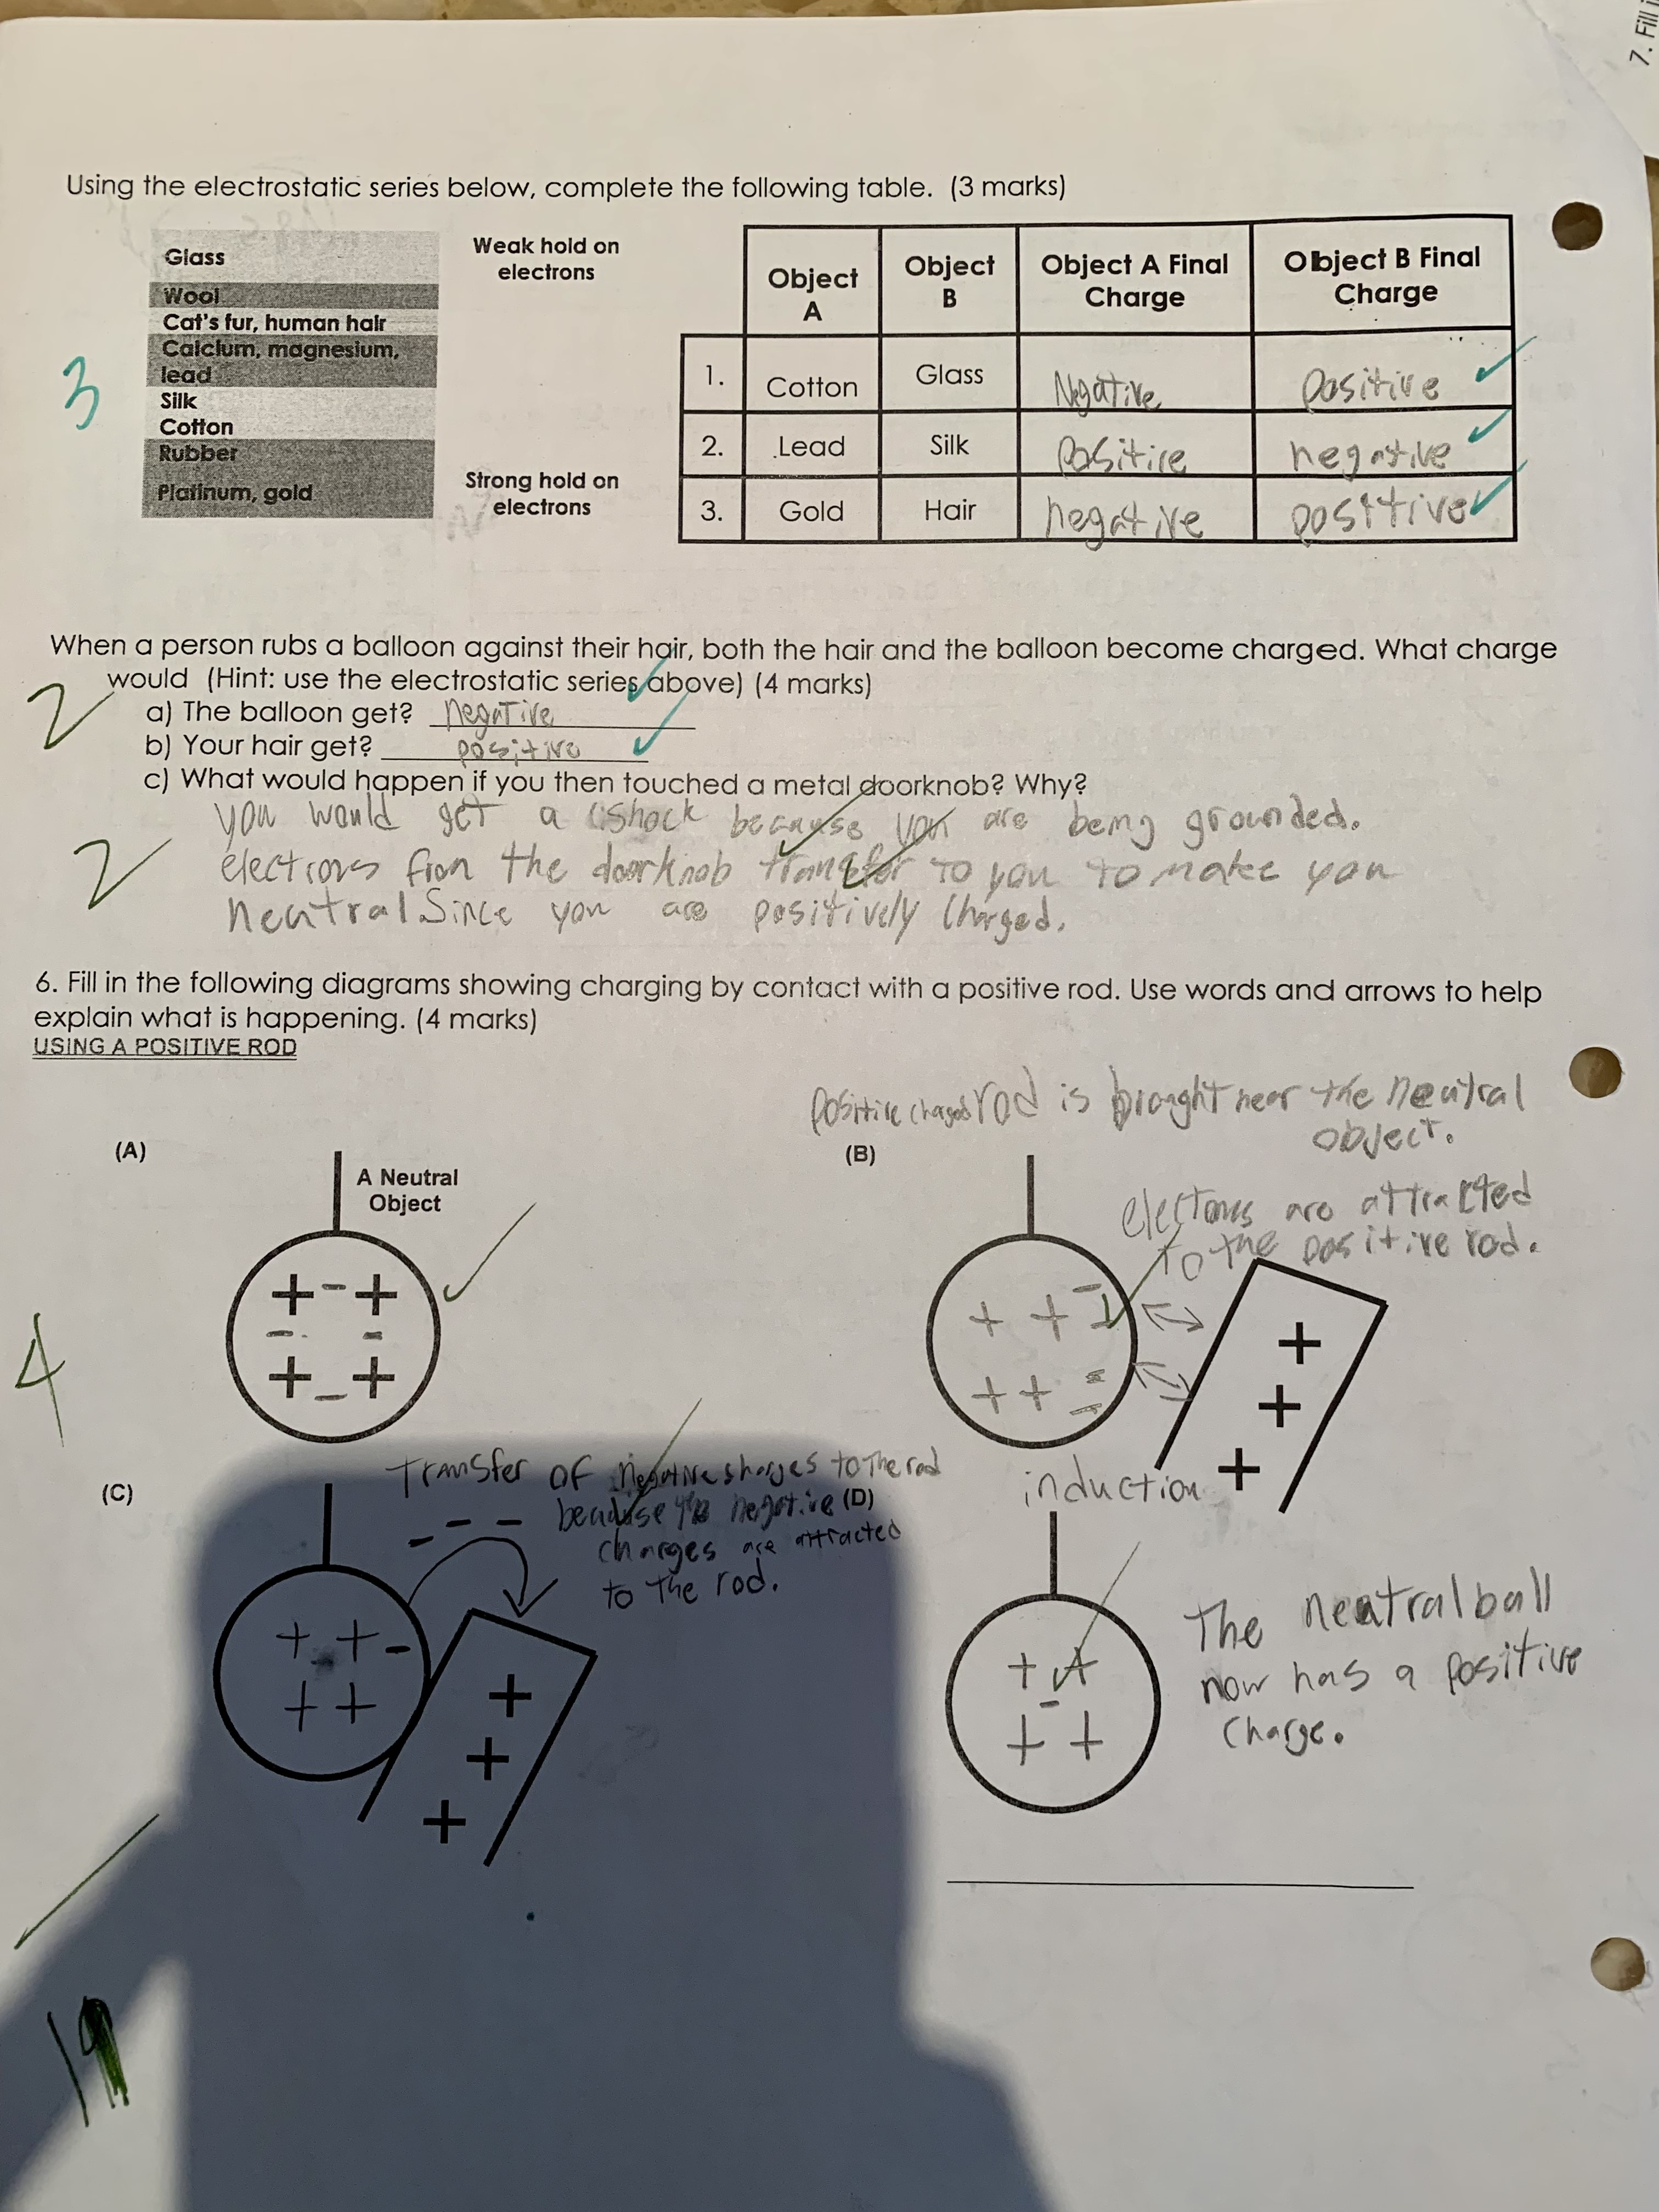 7. Fill i
Using the electrostatic series below, complete the following table. (3 marks)
Glass
Wool
Cat's fur, human hair
Calcium, magnesium,
lead
Silk
Cotton
Rubber
Platinum, gold
Weak hold on
electrons
Strong hold on
electrons
Object A Object B Object A Final Charge Object B Final Charge
1. Cotton Glass Negative positive
2. Lead Silk Positive negative
3. Gold Hair negative positive
3
When a person rubs a balloon against their hair, both the hair and the balloon become charged. What charge
would (Hint: use the electrostatic series above) (4 marks)
2
a) The balloon get? negative
b) Your hair get? positive
c) What would happen if you then touched a metal doorknob? Why?
you would get a shock because you are being grounded.
2
electrons from the doorknob transfer to you to make you
neutral Since you are positively Charged.
6. Fill in the following diagrams showing charging by contact with a positive rod. Use words and arrows to help
explain what is happening. (4 marks)
USING A POSITIVE ROD
4
(A)
A Neutral
Object
+ - +
- -
+ - +
positive charged rod is brought near the neutral
object.
(B)
are attracted
to the positive rod.
+ + -
+ + = -
+
+
+
induction
(C)
Transfer of negative charges to the rod
because the negative
charges are attracted
to the rod.
- - -
+ + -
-
+ +
+
+
+
(D)
+ +
-
+ +
The neutral ball
now has a positive
Charge.